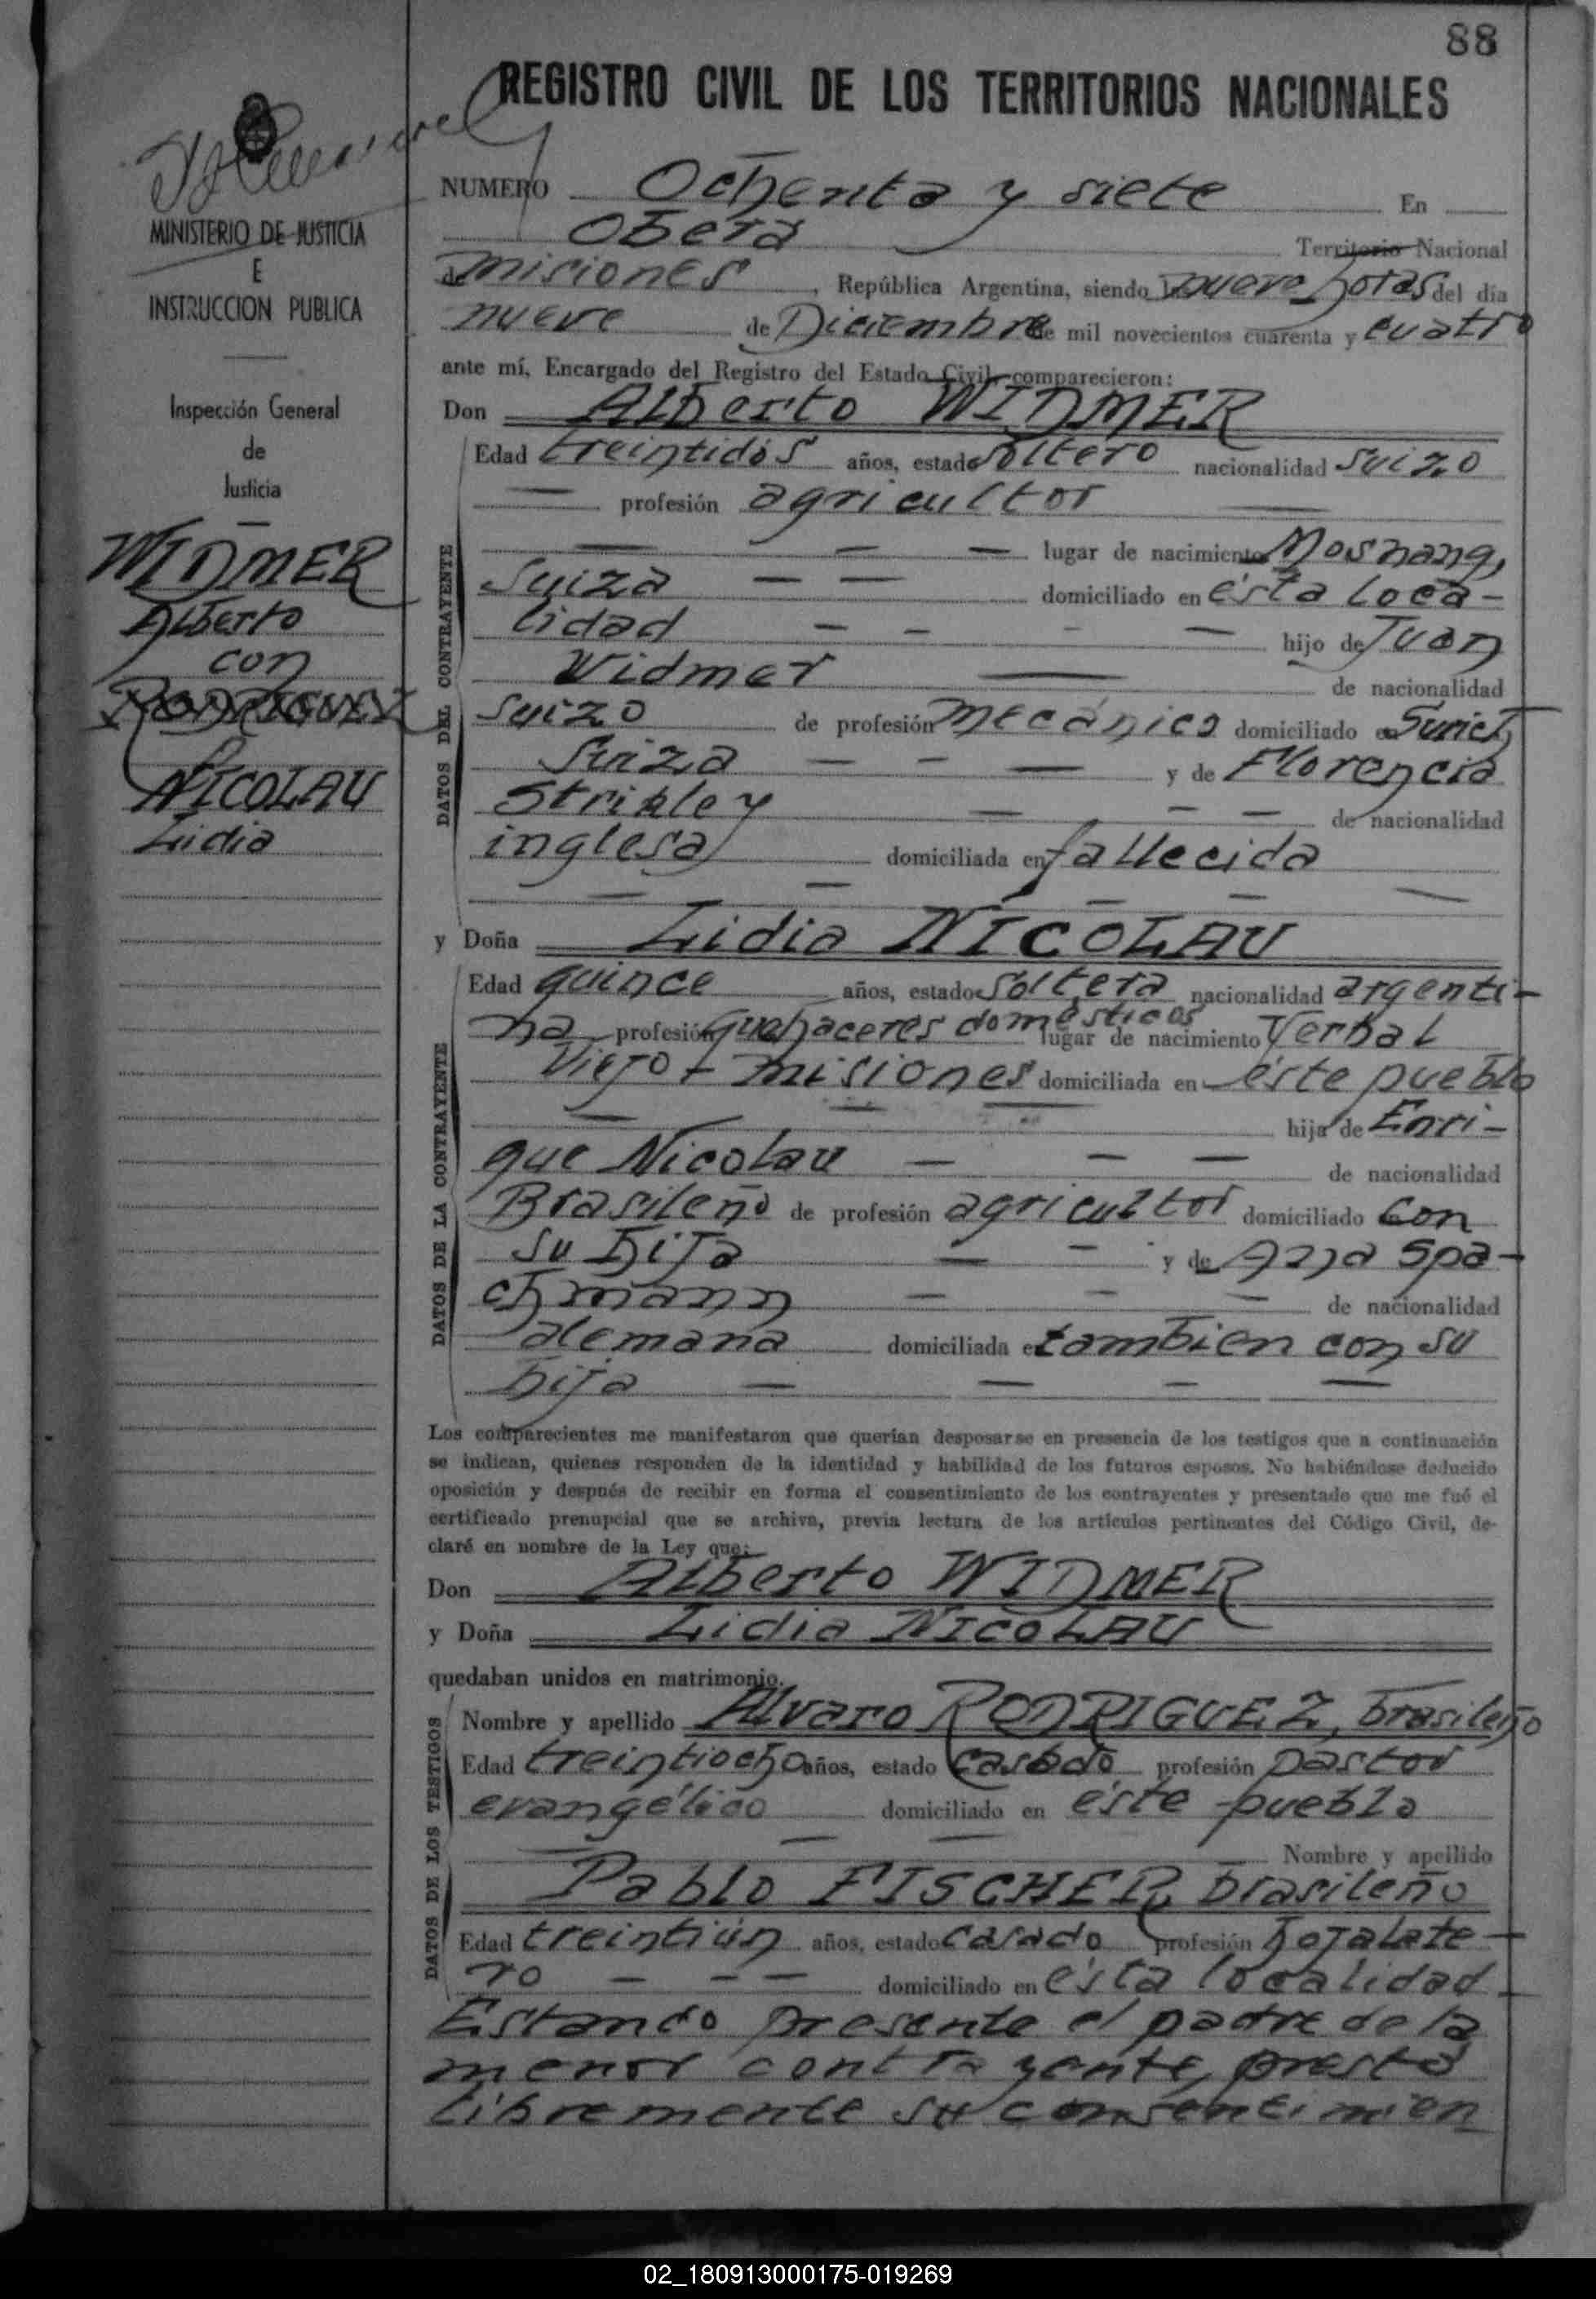 88
REGISTRO CIVIL DE LOS TERRITORIOS NACIONALES
MINISTERIO DE JUSTICIA
E
INSTRUCCION PUBLICA
Inspección General
de
Justicia
WIDMER
Alberto
con
RODRIGUEZ
NICOLAU
Lidia
NUMERO Ochenta y siete En
Oberá Territorio Nacional
de Misiones, República Argentina, siendo nueve horas del día
nueve de Diciembre de mil novecientos cuarenta y cuatro
ante mí, Encargado del Registro del Estado Civil, comparecieron:
Don Alberto WIDMER
DATOS DEL CONTRAYENTE
Edad treintidós años, estado soltero nacionalidad suizo
profesión agricultor
lugar de nacimiento Mosnang,
Suiza domiciliado en ésta loca-
lidad hijo de Juan
Widmer de nacionalidad
suizo de profesión mecánico domiciliado en Surich
Suiza y de Florencia
Strikley de nacionalidad
inglesa domiciliada en fallecida
y Doña Lidia NICOLAU
DATOS DE LA CONTRAYENTE
Edad quince años, estado soltera nacionalidad argenti-
na profesión quehaceres domésticos lugar de nacimiento Yerbal
Viejo - Misiones domiciliada en éste pueblo
hija de Enri-
que Nicolau de nacionalidad
Brasileño de profesión agricultor domiciliado con
su hija y de Ana Spa-
chmann de nacionalidad
alemana domiciliada en tambien con su
hija
Los comparecientes me manifestaron que querían desposarse en presencia de los testigos que a continuación
se indican, quienes responden de la identidad y habilidad de los futuros esposos. No habiéndose deducido
oposición y después de recibir en forma el consentimiento de los contrayentes y presentado que me fué el
certificado prenupcial que se archiva, previa lectura de los artículos pertinentes del Código Civil, de-
claré en nombre de la Ley que:
Don Alberto WIDMER
y Doña Lidia NICOLAU
quedaban unidos en matrimonio.
DATOS DE LOS TESTIGOS
Nombre y apellido Alvaro RODRIGUEZ, brasileño
Edad treintiocho años, estado casado profesión pastor
evangélico domiciliado en éste pueblo
Nombre y apellido
Pablo FISCHER, brasileño
Edad treintiún años, estado casado profesión hojalate-
ro domiciliado en ésta localidad
Estando presente el padre de la
menor contrayente, prestó
libremente su consentimien
02_180913000175-019269